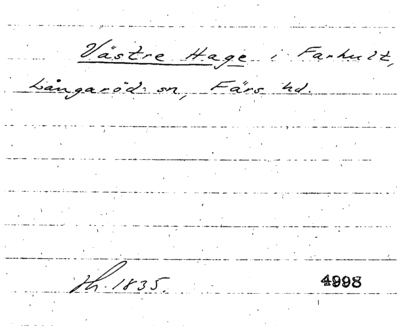 Västre Hage i Farhult,
Långaröd sn, Färs hd.
Hh. 1835.
4998